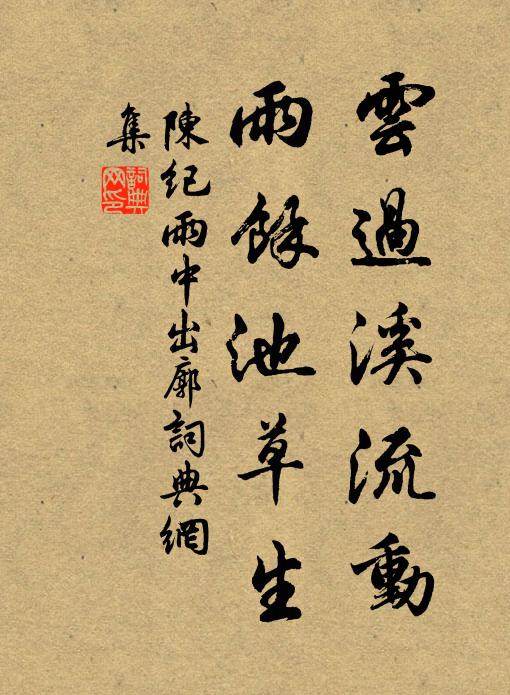 雲過溪流動
雨餘池草生
陳紀雨中出廓詞典網
集
詞典
网印